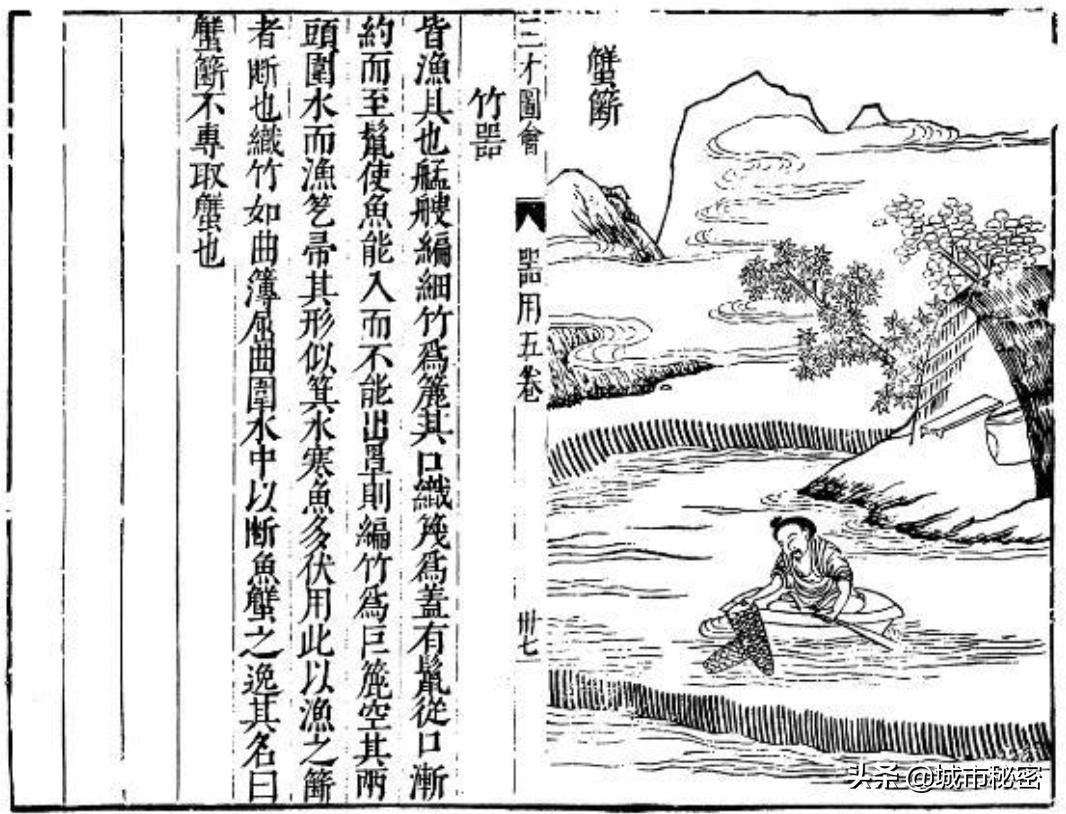 蟹簖
三才圖會 器用五卷 卅七
竹器
皆漁具也艋艘編細竹爲簏其口織篾爲蓋有鬣從口漸
約而至鬣使魚能入而不能出罩則編竹爲巨簏空其兩
頭圍水而漁笓帚其形似箕水寒魚多伏用此以漁之簖
者断也織竹如曲簿屈曲圍水中以断魚蟹之逸其名曰
蟹簖不專取蟹也
头条 @城市秘密